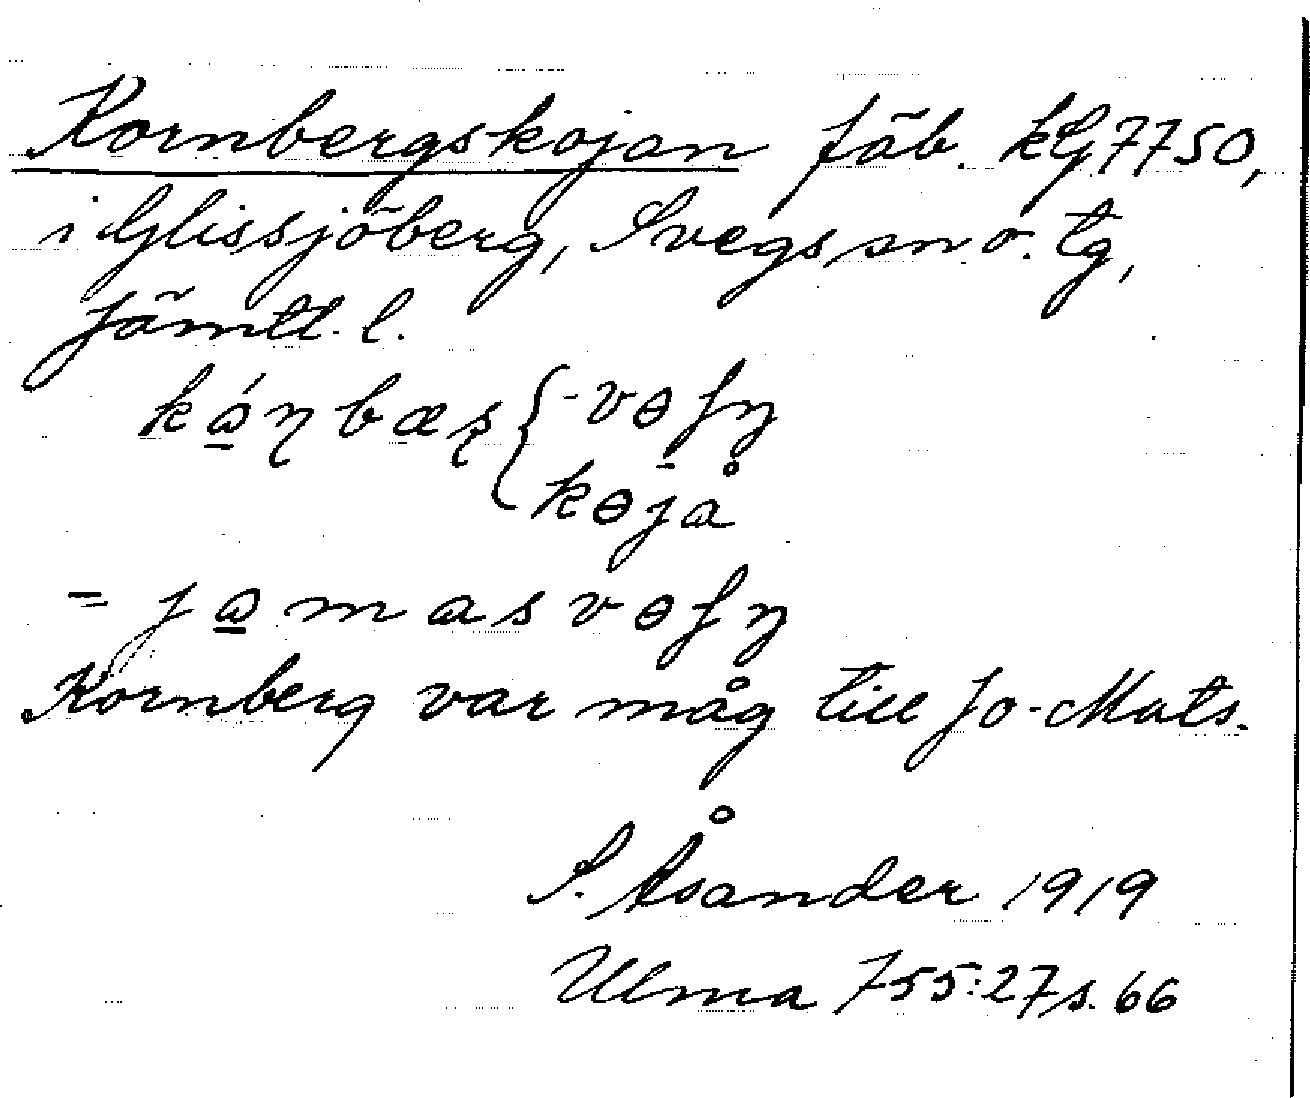 Kornbergskojan fäb. kG 7750,
i Glissjöberg, Svegs sn o. tg,
Jämtl. l.
kɷ́ɳbæʂ { -vɵʃɳ
kɵjå
= jɷmasvɵʃɳ
Kornberg var måg till Jo-Mats.
S. Åsander 1919
Ulma 755:27 s. 66